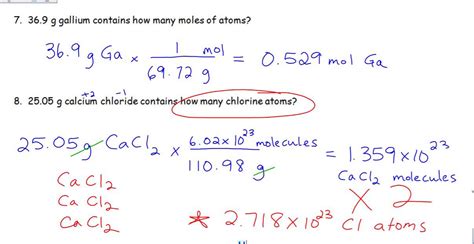 7. 36.9 g gallium contains how many moles of atoms?
36.9 g Ga × 1 mol / 69.72 g = 0.529 mol Ga
+2 -1
8. 25.05 g calcium chloride contains how many chlorine atoms?
25.05 g CaCl₂ × 6.02×10²³ molecules / 110.98 g = 1.359×10²³
CaCl₂ molecules
CaCl₂
CaCl₂
CaCl₂
× 2
* 2.718×10²³ Cl atoms